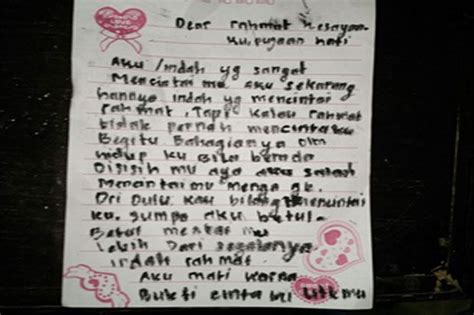 Dear rahmat kesayan
ku, pujaan hati
Aku / indah yg sangat
Mencintai mu aku sekarang
hannya indah yg mencintai
rahmat, Tapi kalau rahmat
tidak pernah mencintaku
Begitu Bahagianya
hidup ku Bila berada
Disisih mu aya aku salah
Mencintaimu Menga gk.
Dri Dulu kau bilang mencintai
ku. sumpa aku betul-
Betul
lebih Dari segalanya
indah rahmat
Aku mati karna
Bukti cinta ku utk mu